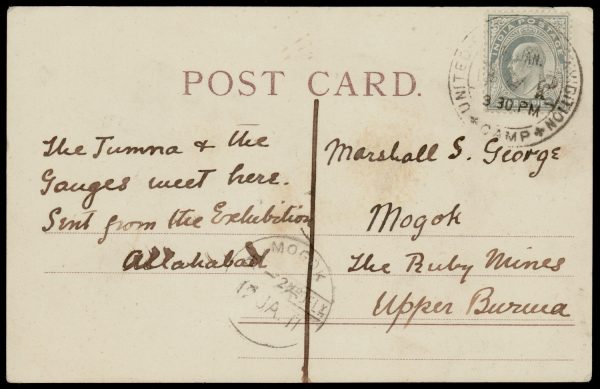 POST CARD.
INDIA POSTAGE
UNITED
JAN.
3 30 PM
CAMP
The Jumna & the
Ganges meet here.
Sent from the Exhibition
Allahabad
Marshall S. George
Mogok
The Ruby Mines
Upper Burma
MOGOK
17 JA. 11